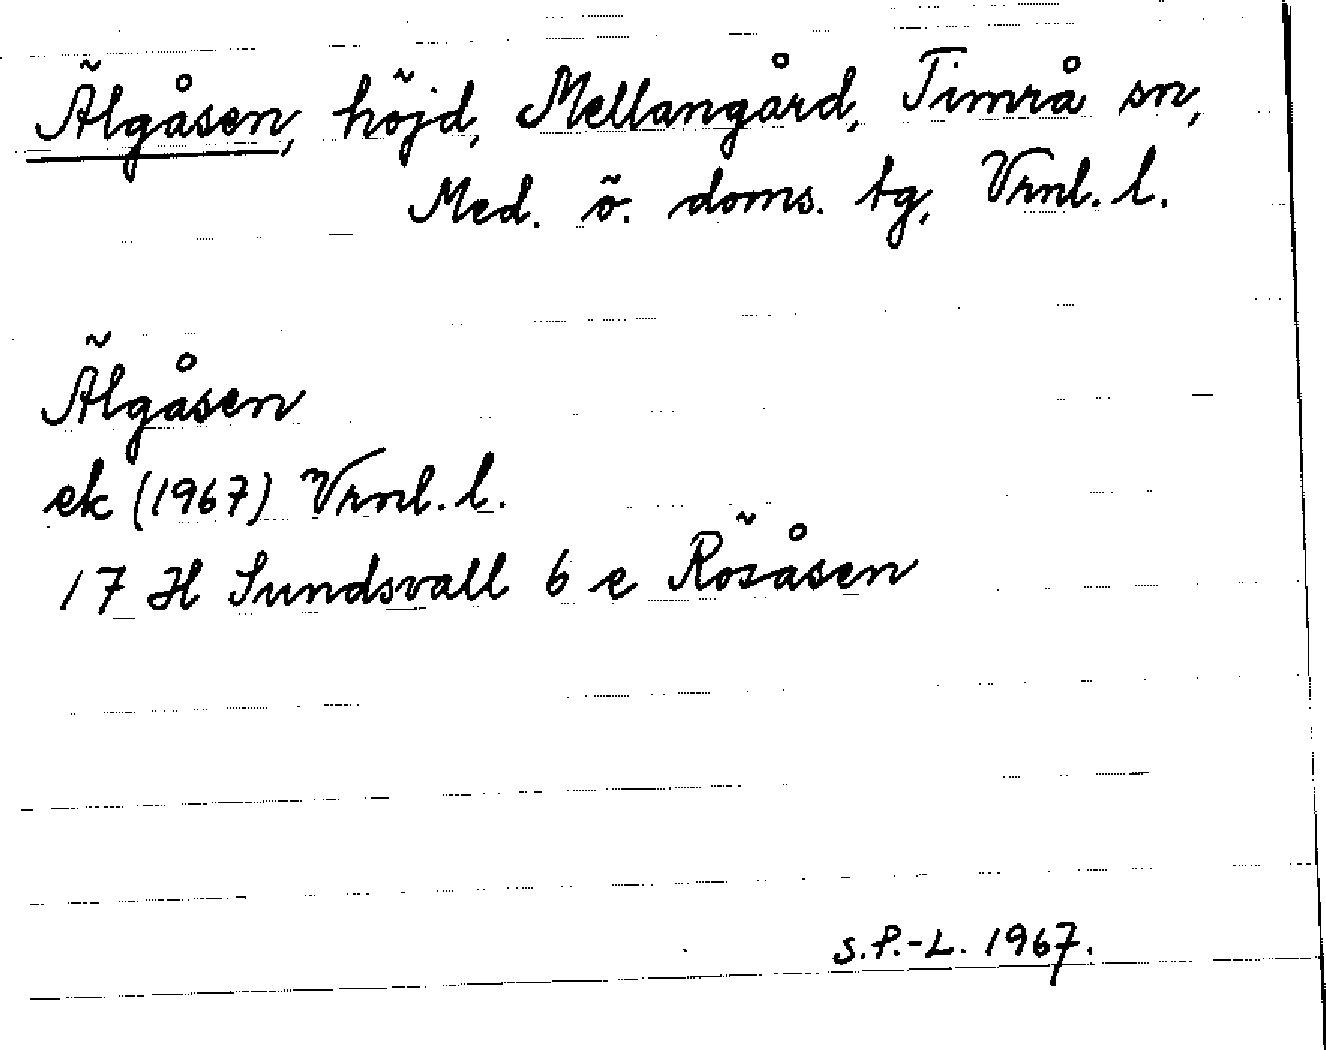 Älgåsen, höjd, Mellangård, Timrå sn,
Med. ö. doms. tg, Vrnl. l.
Älgåsen
ek (1967) Vrnl. l.
17 H Sundsvall 6 e Rösåsen
S.P.-L. 1967.